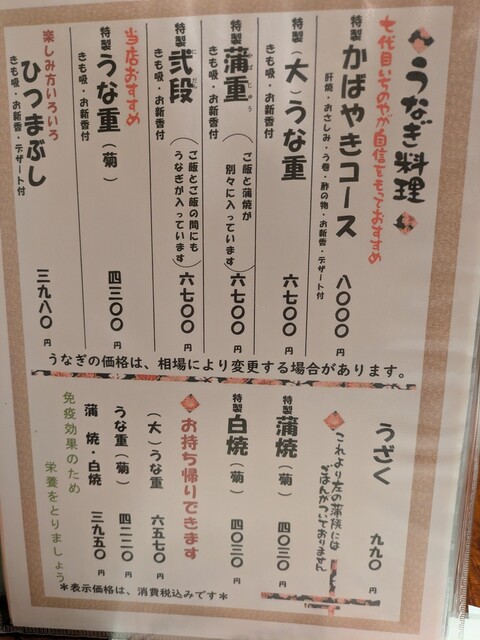 うなぎ料理
七代目いちのやが自信をもっておすすめ
特製 かばやきコース 八〇〇〇円
肝焼・おさしみ・う巻・酢の物・お新香・デザート付
特製(大)うな重 六七〇〇円
きも吸・お新香付
特製 蒲重 (ご飯と蒲焼が別々に入っています) 六七〇〇円
きも吸・お新香付
特製 弐段 (ご飯とご飯の間にもうなぎが入っています) 六七〇〇円
きも吸・お新香付
当店おすすめ
特製 うな重(菊) 四三〇〇円
きも吸・お新香付
楽しみ方いろいろ
ひつまぶし 三九八〇円
きも吸・お新香・デザート付
うなぎの価格は、相場により変更する場合があります。
うざく 九九〇円
これより左の蒲焼には
ごはんがついておりません
特製 蒲焼(菊) 四〇三〇円
特製 白焼(菊) 四〇三〇円
お持ち帰りできます
(大)うな重 六五七〇円
うな重(菊) 四二二〇円
蒲焼・白焼 三九五〇円
免疫効果のため
栄養をとりましょう
*表示価格は、消費税込みです*